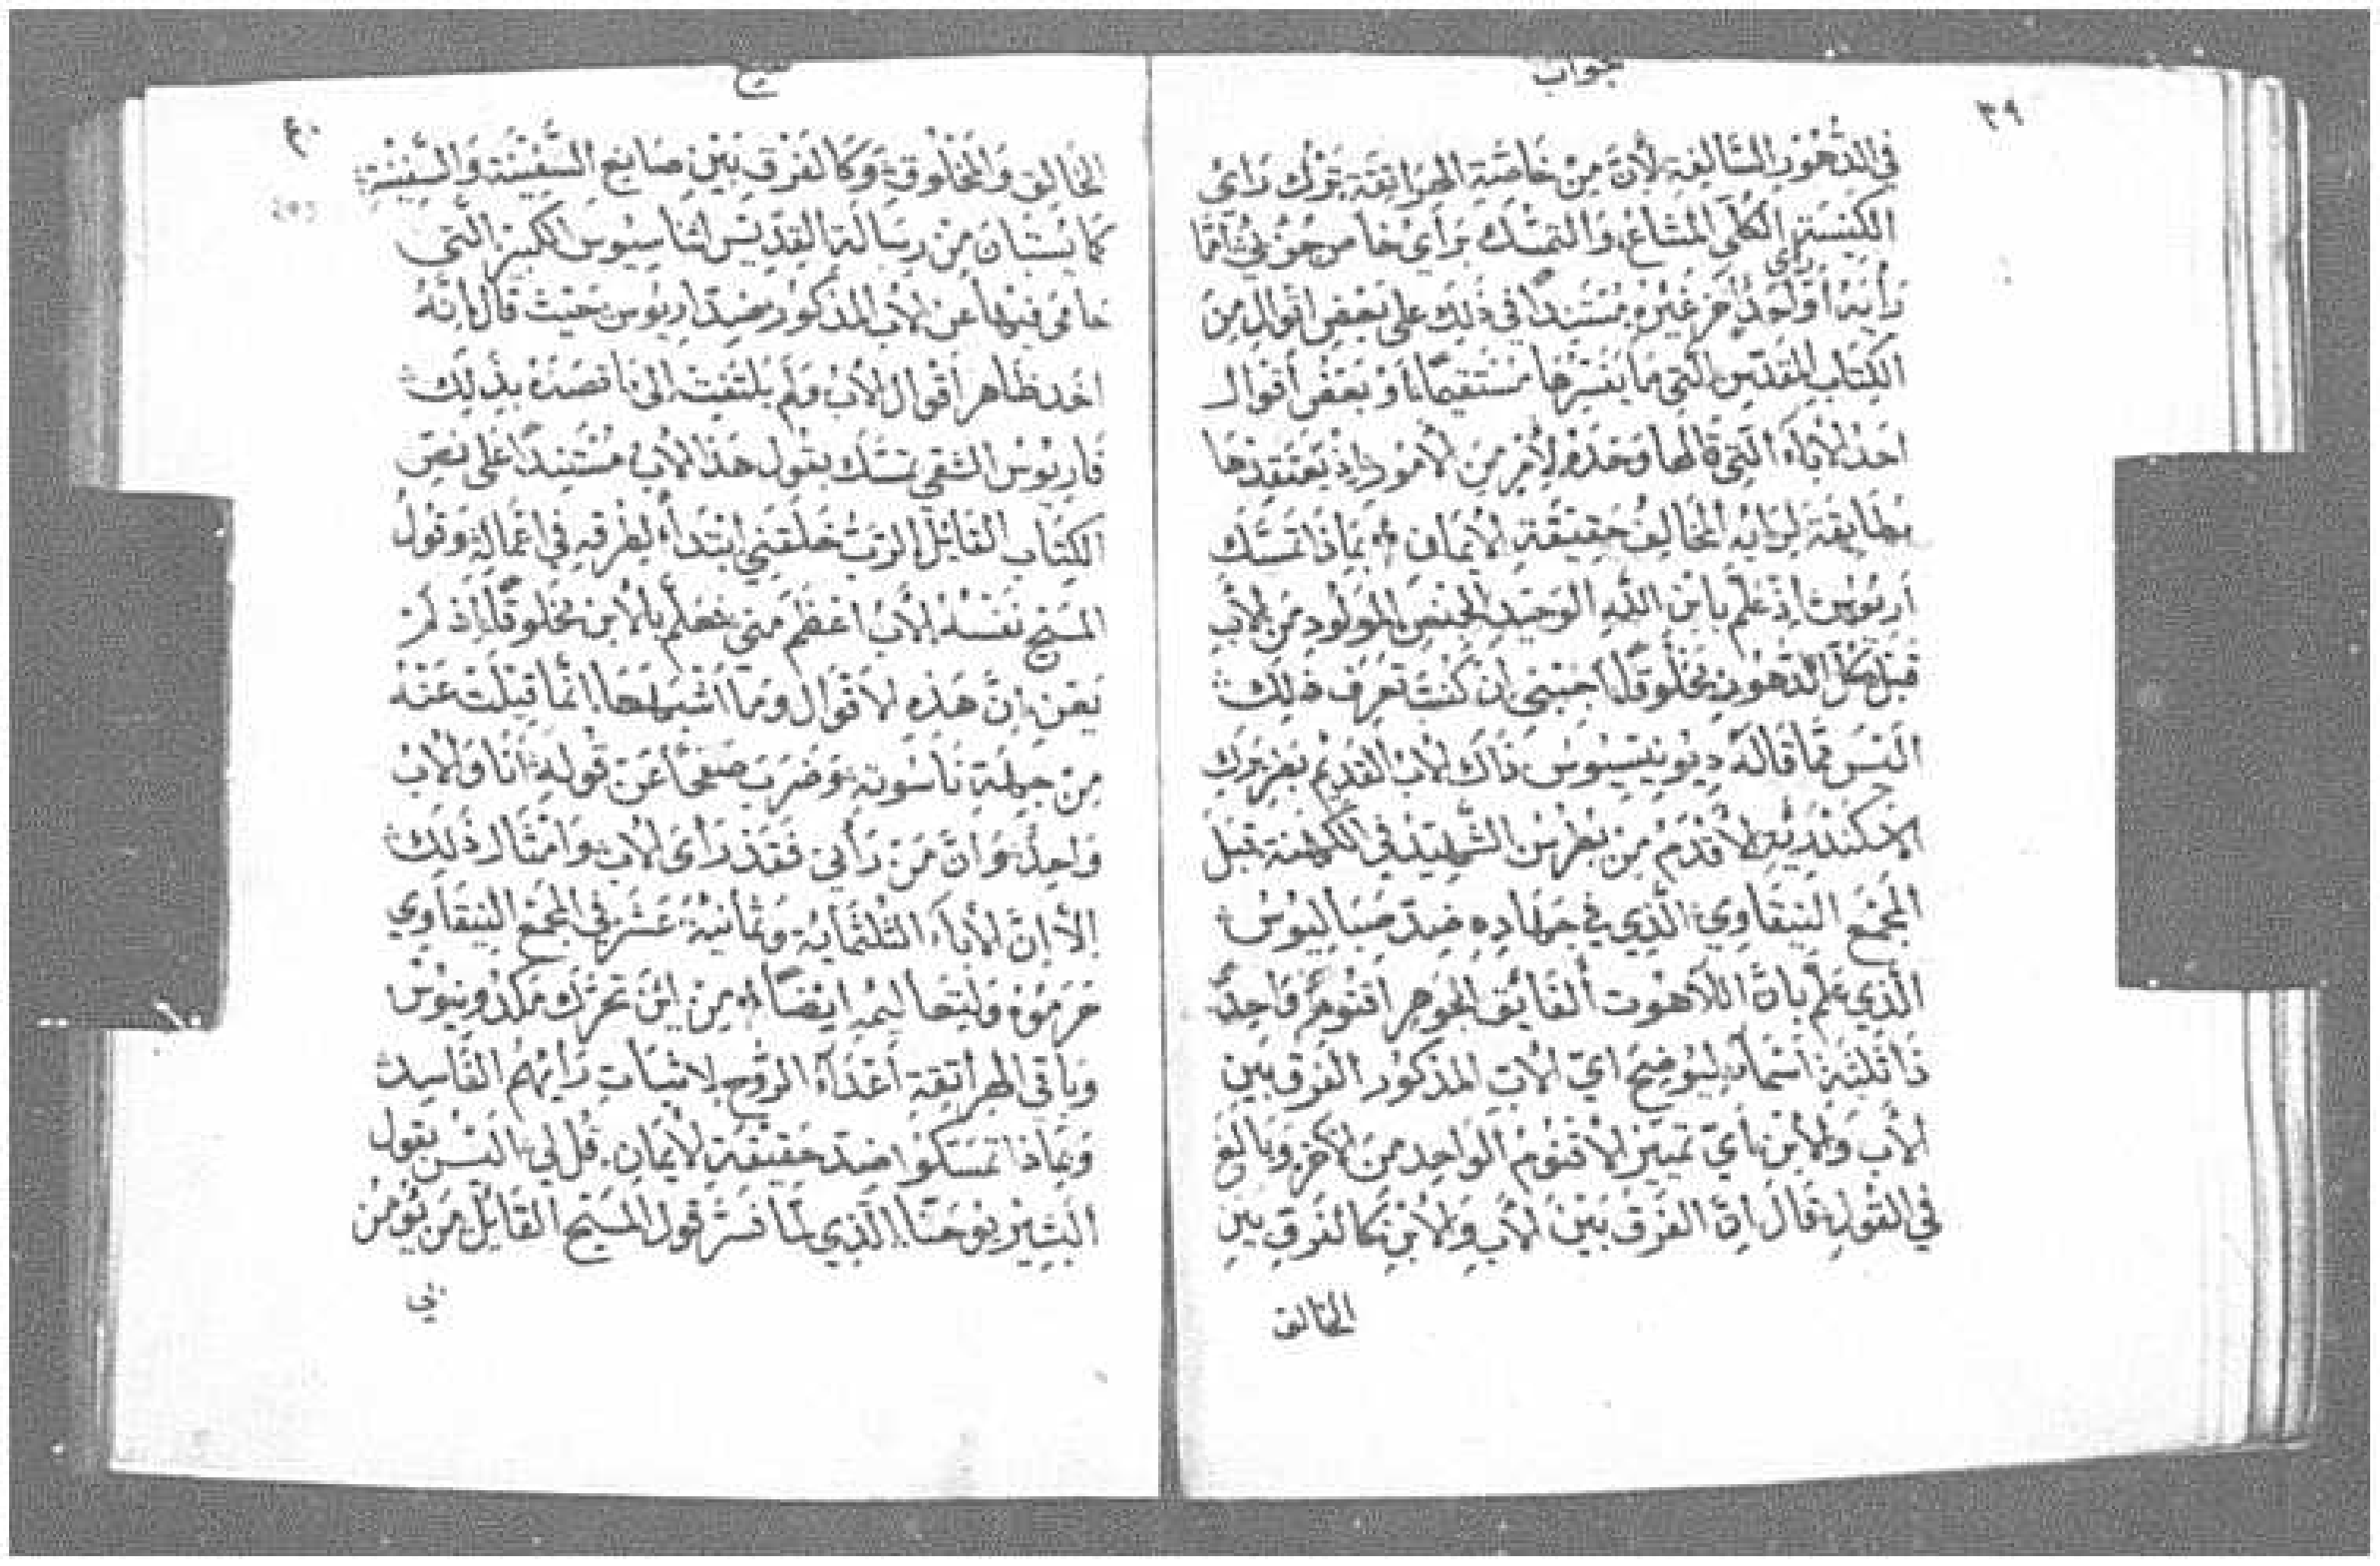 جواب
٣٩
في الدهور السالفة لأن من خاصة الهراتقة ترك راي
الكنيسة الكلي المشاع والتمسك براي خاص جزئي اما
راي
رأيه أو لوحد آخر غيره مستندا في ذلك على بعض اقوال من
الكتاب المقدس التي ما يفسرها مستقيما او بعض أقوال
احد الاباء التي قالها وحده لأمر من الامور اذ يعتقدها
مطابقة لرايه المخالف حقيقة الايمان بماذا تمسك
اريوس اذ علم بابن الله الوحيد الجنس المولود من الاب
قبل كل الدهور مخلوقا اجبني ان كنت تعرف ذلك
اليس مما قاله ديونيسيوس ذاك الاب القديم بطريرك
الاسكندرية الأقدم من بطرس الشهيد في الكهنة قبل
المجمع النيقاوي الذي في جهاده ضد صباليوس
الذي علم بأن اللاهوت الفايق الجوهر اقنوم واحد
ذا ثلثة أسماء ليوضح اي الاب المذكور الفرق بين
الأب والأبن أي تمييز الأقنوم الواحد من الاخر وبالغ
في القول فقال ان الفرق بين الأب والأبن كالفرق بين
الخالق
سيح
٤٠
الخالق والمخلوق وكالفرق بين صانع السفينة والسفينة
كما يستبان من رسالة القديس اثناسيوس الكبير التي
حامى فيها عن الاب المذكور ضد اريوس حيث قال انه
اخذ ظاهر أقوال الاب ولم يلتفت الى ما قصده بذلك
فاريوس الشقي تمسك بقول هذا الأب مستندا على نص
الكتاب القائل الرب خلقني ابتداء لطرقه في اعماله وقول
المسيح نفسه الأب اعظم مني فعلم بالابن مخلوقا اذ لم
يعن ان هذه الاقوال وما أشبهها انما قيلت عنه
من جهة ناسوته وضرب صفحا عن قوله انا والأب
واحد وان من رأني فقد رأى الأب وامثال ذلك
الا ان الأباء الثلثماية وثمانية عشر في المجمع النيقاوي
حرموه ولتعاليمه ايضا من اين تحرك مكدونيوس
وباقي الهراتقة أعداء الروح لاثبات رائهم الفاسد
وبماذا تمسكوا ضد حقيقة الايمان قل لي اليس بقول
البشير يوحنا الذي لما فسر قول المسيح القائل من يؤمن
بي